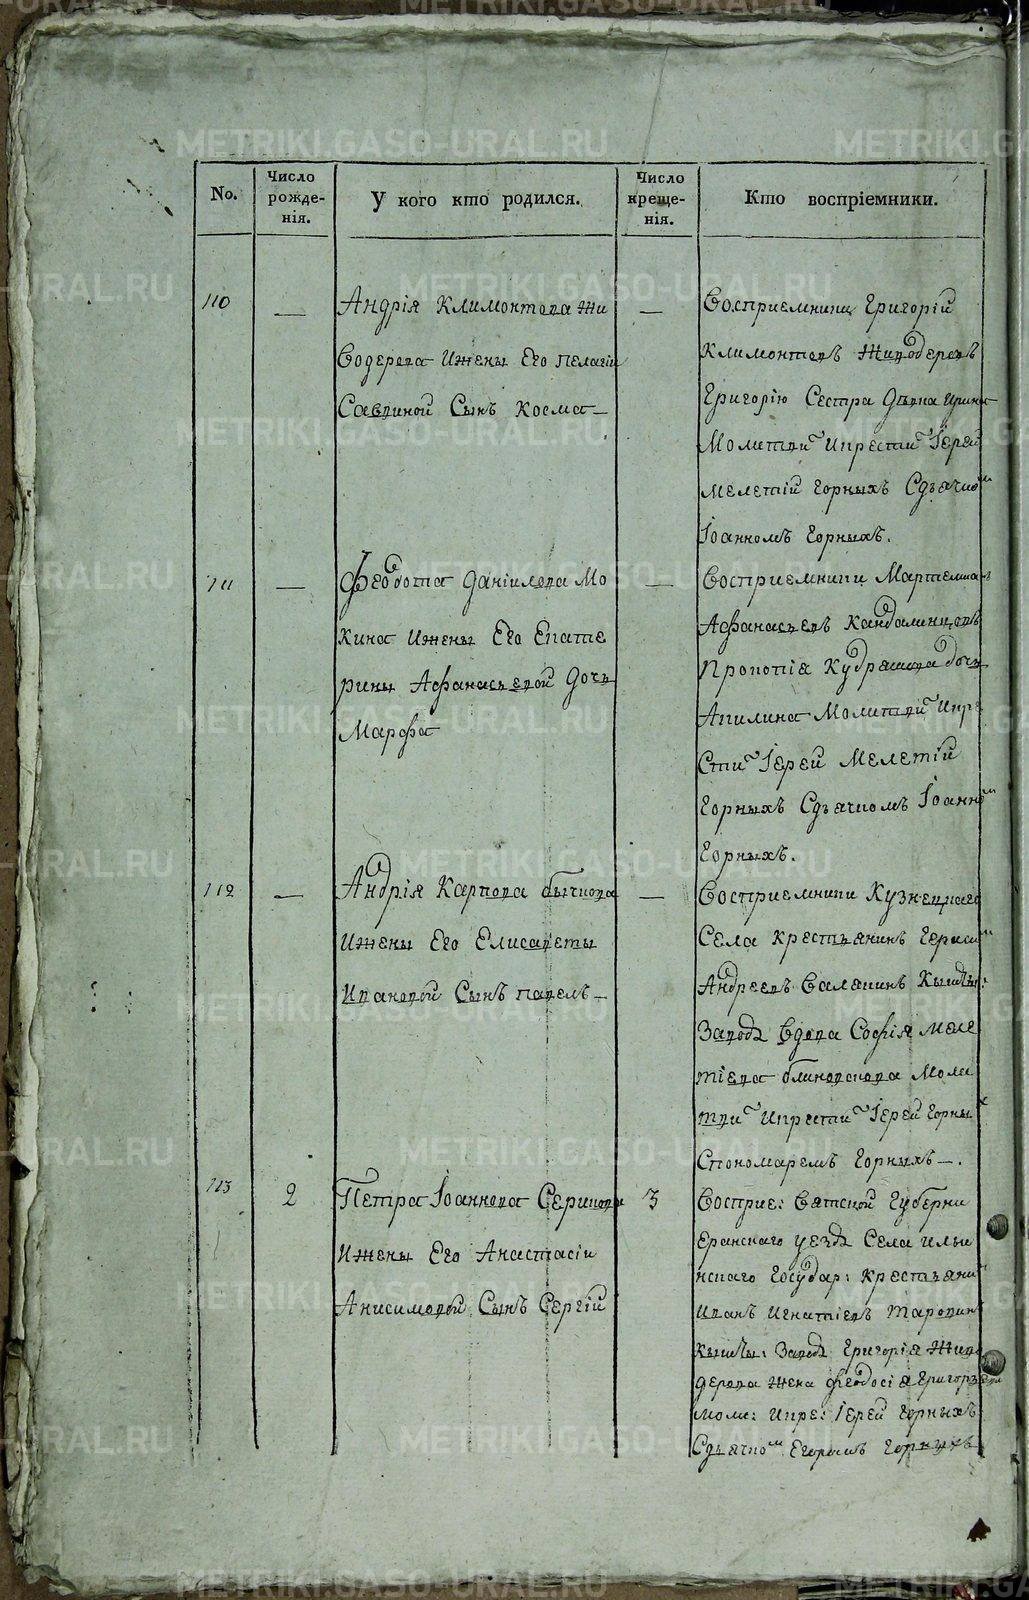 No.
Число рожде-нія.
У кого кто родился.
Число креще-нія.
Кто воспріемники.
110
—
Андрія Климонтова Жи
водерова Иж​ены Его Пелагіи
Саввиной Сынъ Косма—
—
Восприемники Григорій
Климонтовъ Живодеровъ
Григорію Сестра Девка Ирина
Молитви Икрести Іерей
Мелетій Горныхъ Сдьячкои
Іоанномъ Горныхъ.
111
—
Феодота Даніилова Мо
кина Ижены Его Екате
рины Афанасьевой Дочь
Марфа
—
Восприемники
Афанасьевъ
Прокопія Кудрашова дочь
Акилина Молитви Икре
Сти Іерей Мелетій
Горныхъ Сдьячкомъ Іоанном
Горныхъ.
112
—
Андрія Карпова Бычкова
Ижены Его Елисаветы
Ивановой Сынъ Павелъ—
—
Восприемники Кузнецкаго
Села Крестьянинъ Герасим
Андреевъ Валавинъ Кышты:
Завода Вдова Софія Меле
тіева Блиновскова Моли
тви Икрести Іерей Горных
Спономаремъ Горныхъ—.
113
2
Петра Іоаннова Серикова
Ижены Его Анастасіи
Анисимовой Сынъ Сергій
3
Восприе: Вятской Губерни
Еранскаго уезда Села Ильи
нскаго Государ: Крестьяни
Иванъ Игнатіевъ
Кышты: Завода Григорія Живо
дерова жена Феодосія Григорьева
Моли: Икре: Іерей Горныхъ
Сдьячком Егоромъ Горныхъ
METRIKI.GASO-URAL.RU